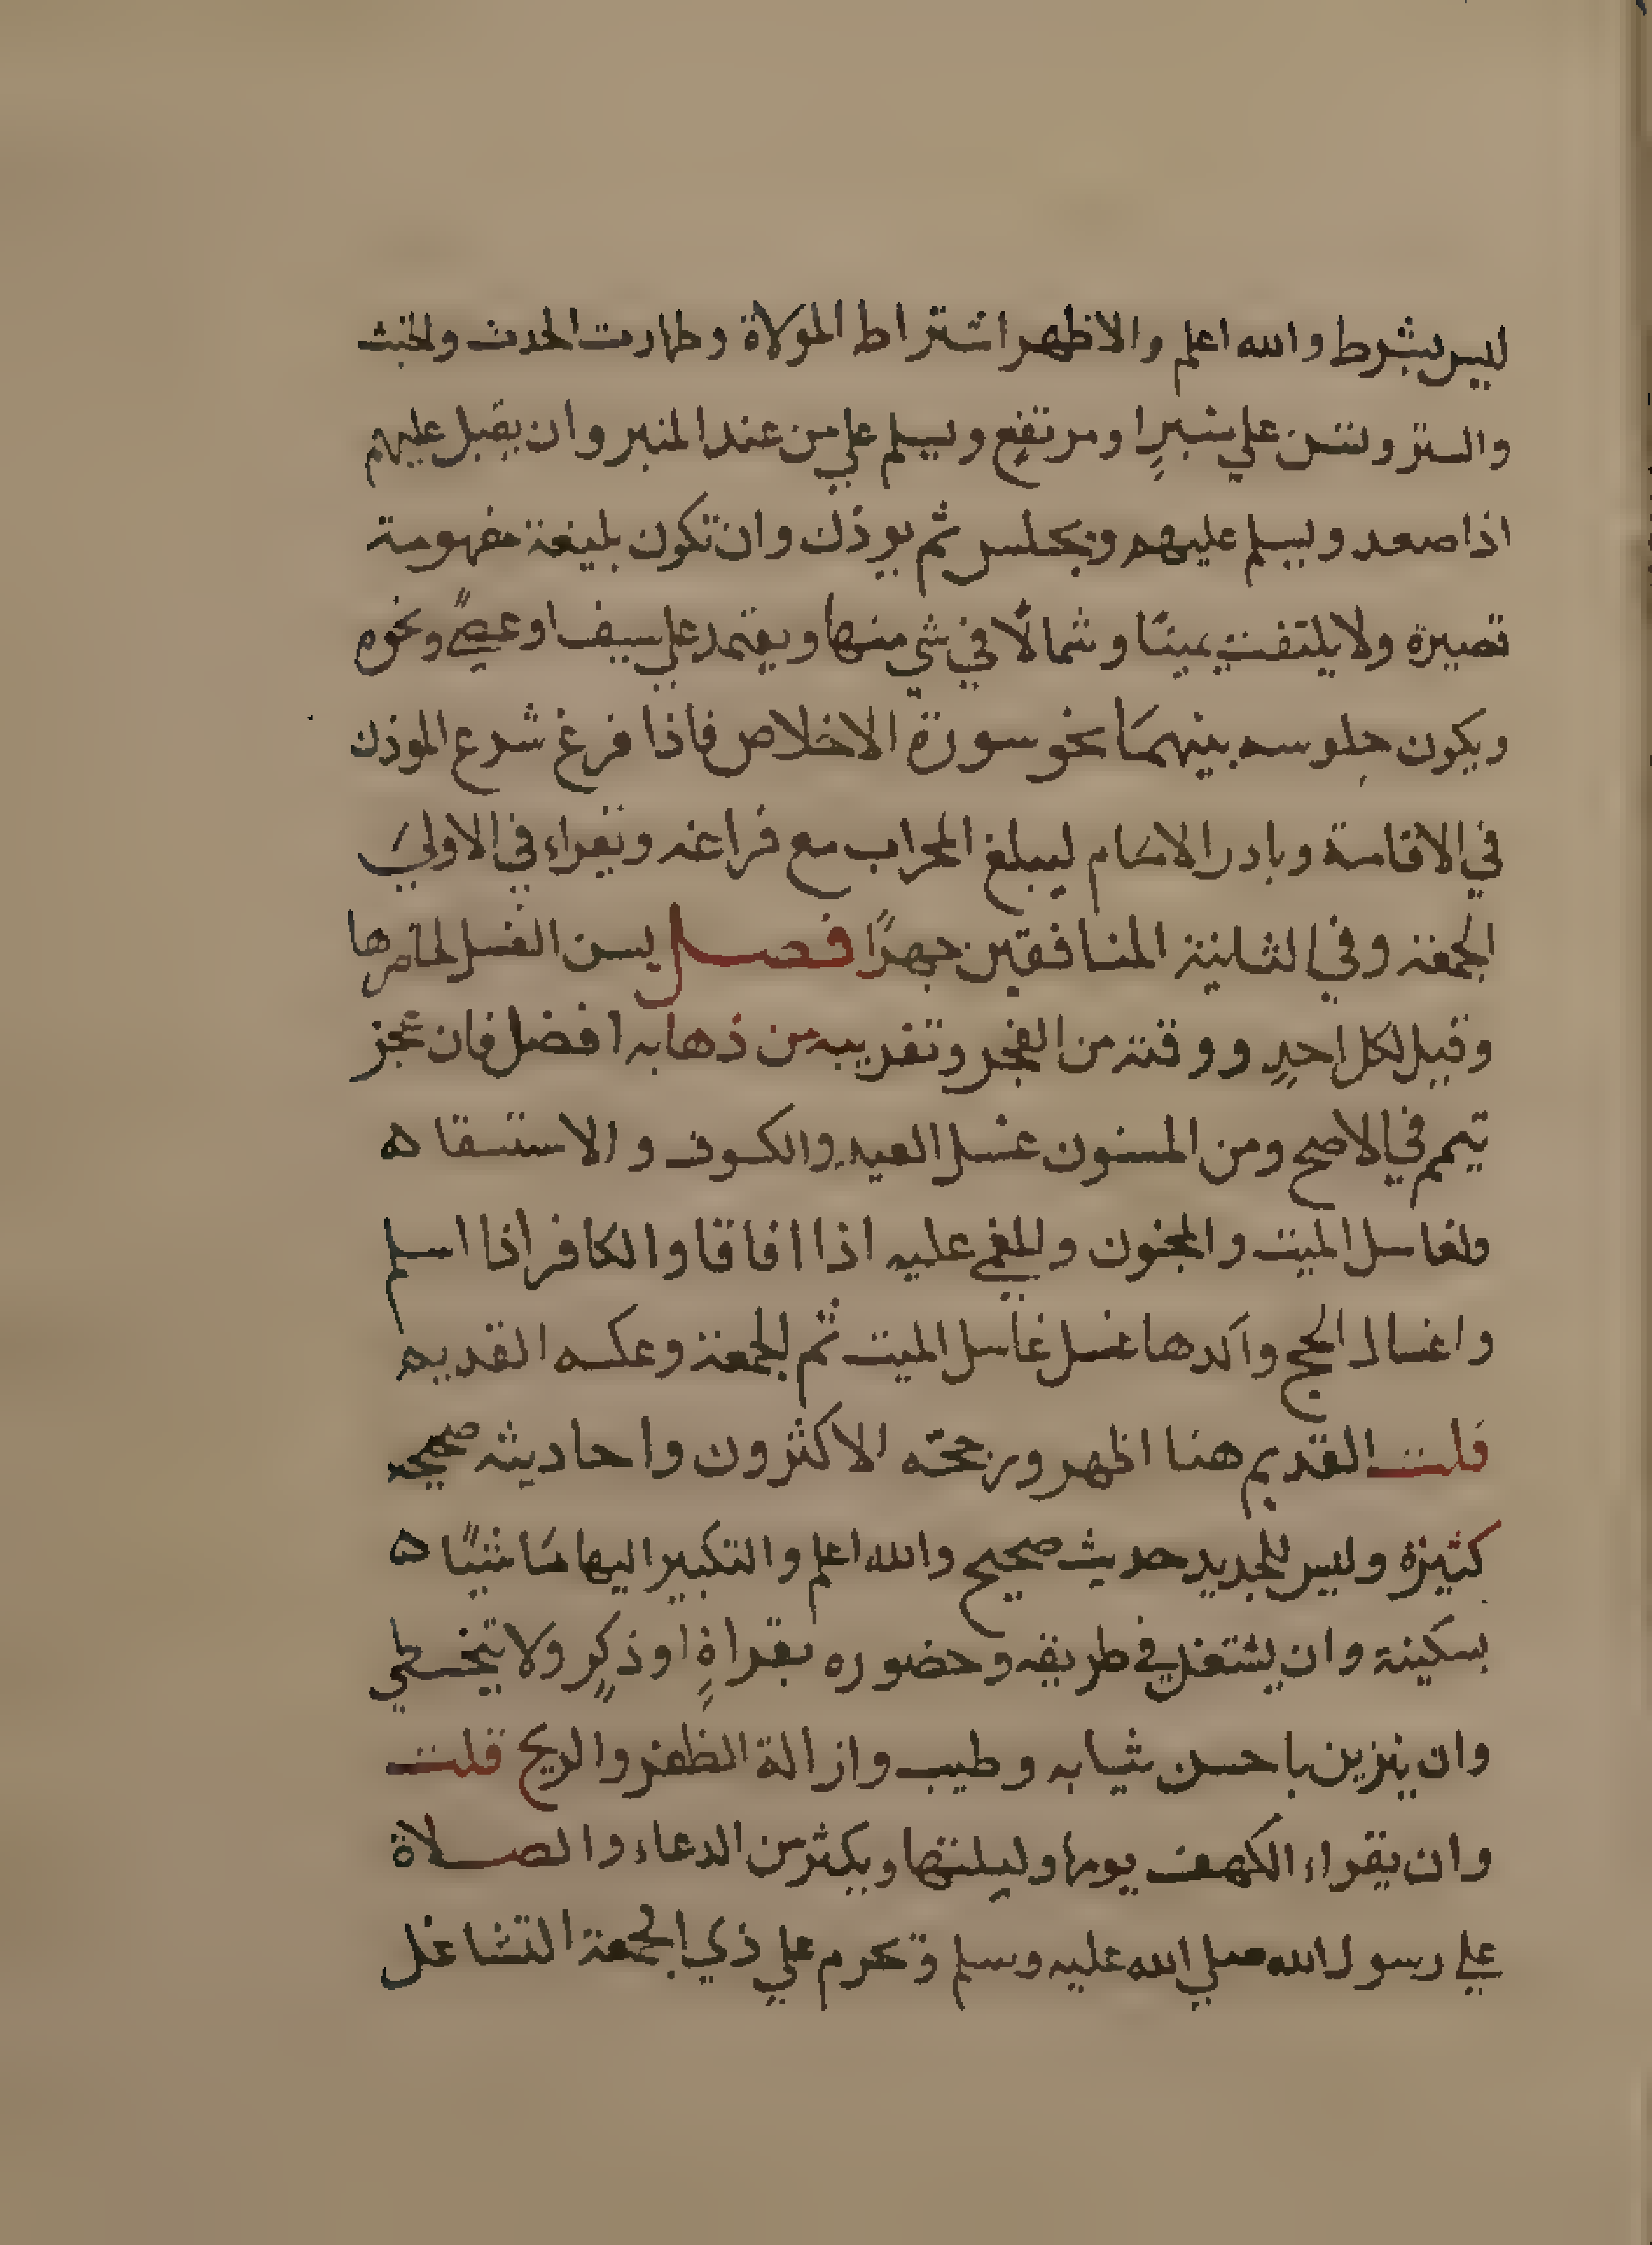 ليس بشرط والله اعلم والاظهر اشتراط المولاة وطهارت الحدث والخبث
والستر وتسن علي منبرٍ او مرتفعٍ ويسلم علي من عند المنبر وان يقبل عليهم
اذا صعد ويسلم عليهم ويجلس ثم يوذن وان تكون بليغة مفهومة
قصيرة ولا يلتفت يمينًا وشمالًا في شي منها ويعتمد علي سيف او عصيً ونحوه
ويكون جلوسه بينهما نحو سورة الاخلاص فاذا فرغ شرع الموذن
في الاقامة وبادر الامام ليبلغ المحراب مع فراغه ويقراء في الاولي
الجمعة وفي الثانية المنافقين جهرًا فصل يسن الغسل لحاضرها
وقيل لكل احدٍ ووقته من الفجر وتقريبه من ذهابه افضل فان عجز
تيمم في الاصح ومن المسنون غسل العيد والكسوف والاستسقا ه
ولغاسل الميت والمجنون والمغمي عليه اذا افاقا والكافر اذا اسلم
واغسال الحج وآكدها غسل غاسل الميت ثم الجمعة وعكسه القديم
قلت القديم هنا اظهر ورجحه الاكثرون واحاديثه صحيحه
كثيرة وليس للجديد حديث صحيح والله اعلم والتكبير اليها ماشيًا ه
بسكينة وان يشتغل في طريقه وحضوره بقراةٍ او ذكرٍ ولا يتخطي
وان يتزين باحسن ثيابه وطيب وازالة الظفر والريح قلت
وان يقراء الكهف يومها وليلتها ويكثر من الدعاء والصلاة
علي رسول الله صلي الله عليه وسلم وتحرم علي ذي الجمعة التشاغل